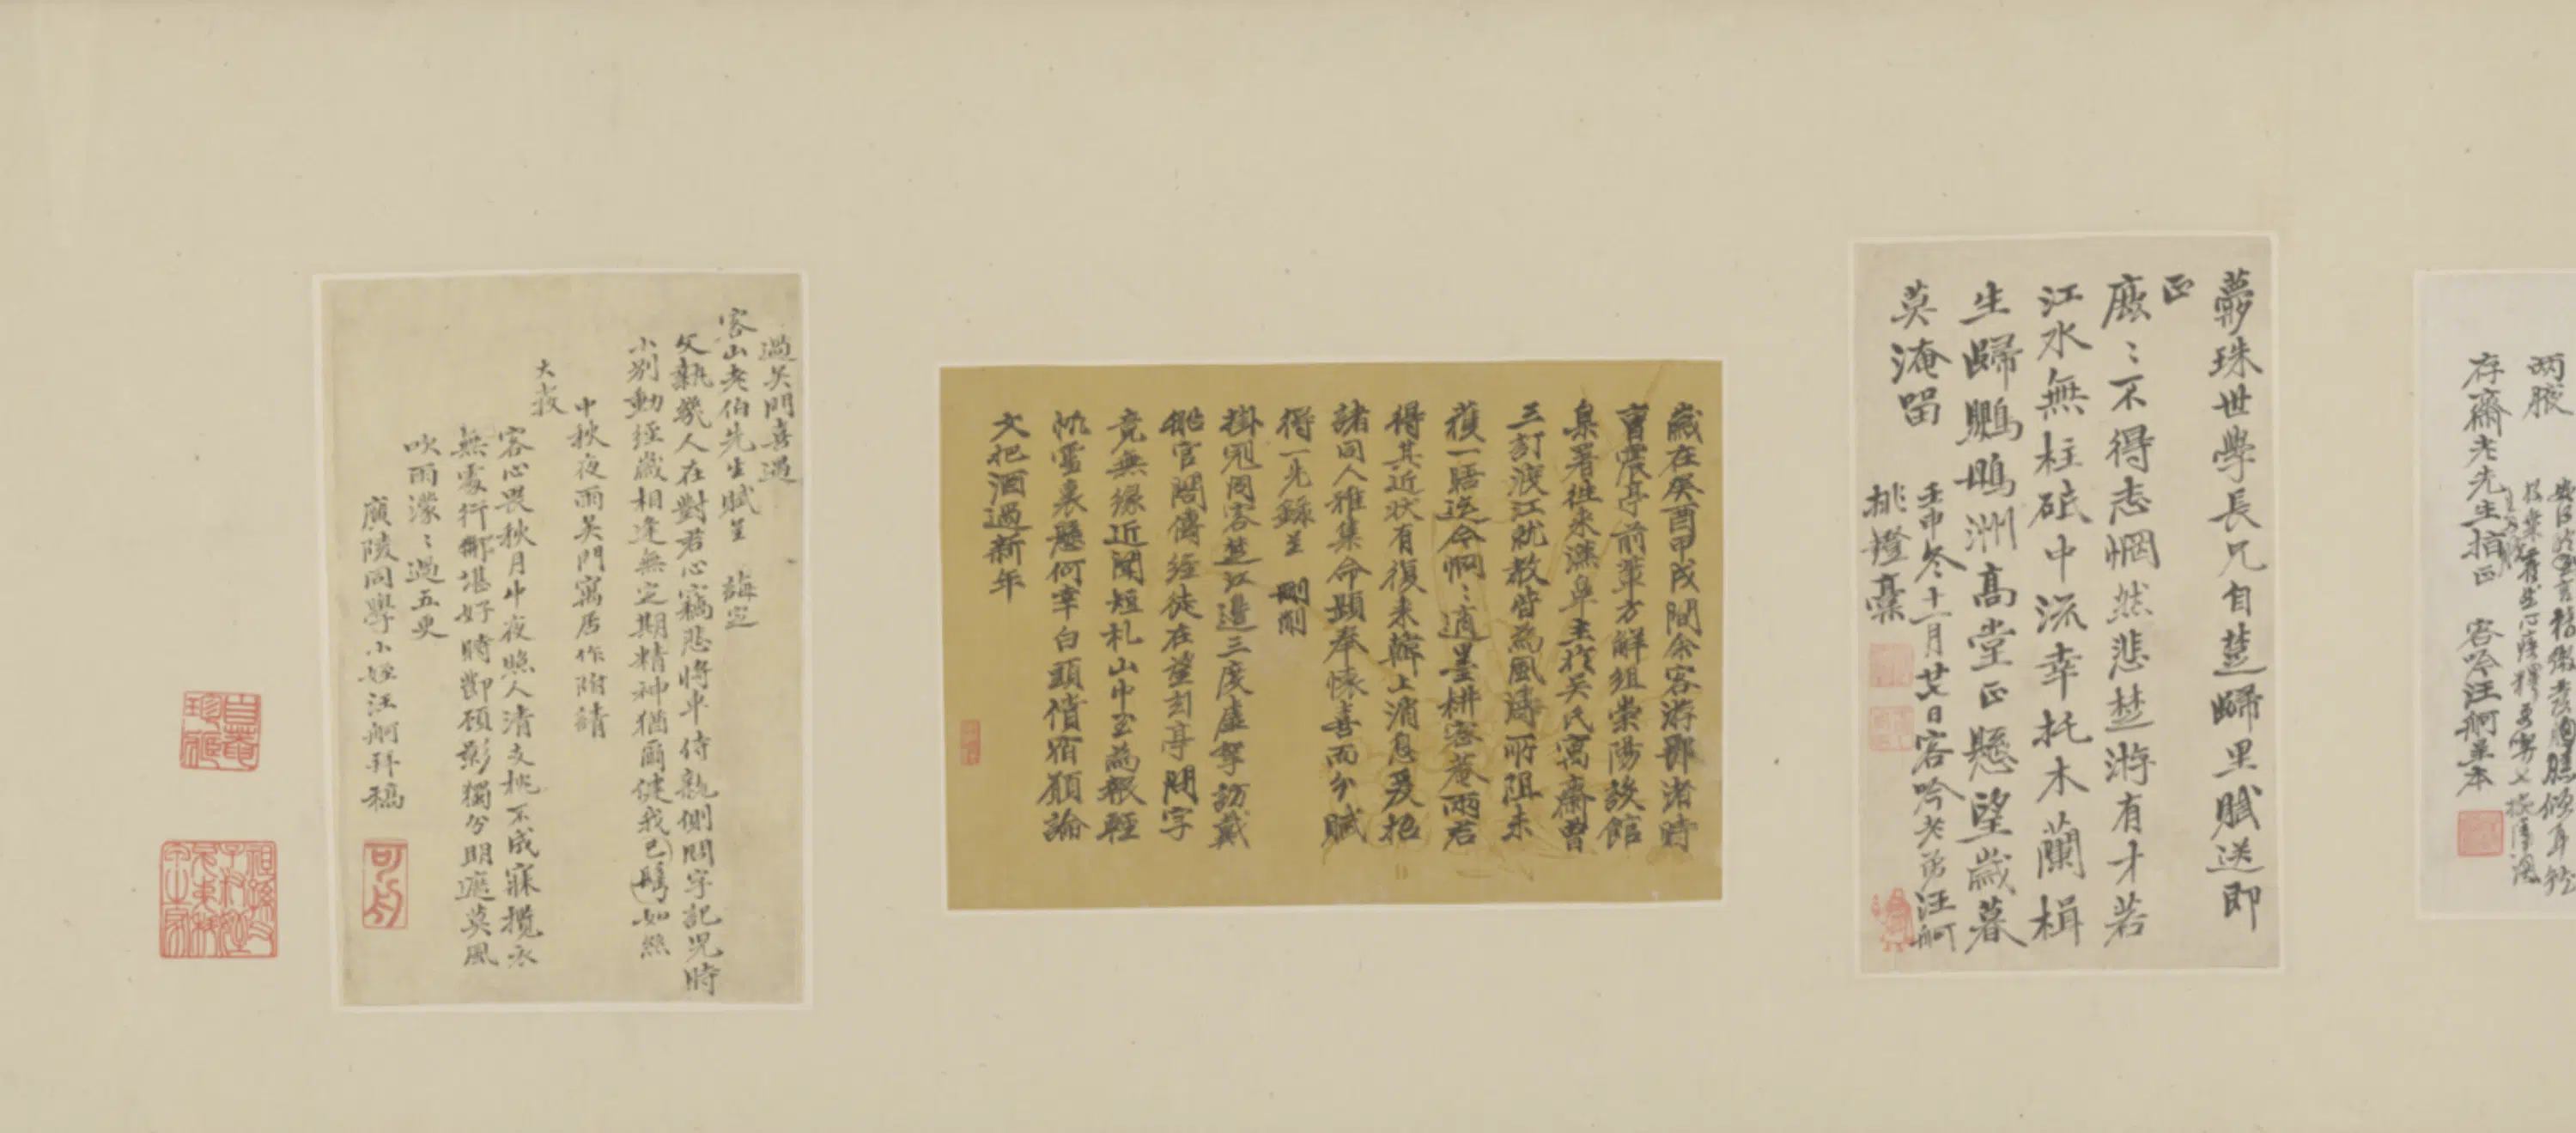 兩腋
存齋老先生指正 客吟汪舸草本
夢珠世學長兄自楚歸里賦送即
正
廒〻不得志惘然悲楚游有才若
江水無柱砥中流幸托木蘭楫
生歸鸚鵡洲高堂正懸望歲暮
莫淹留
壬申冬十一月廿日客吟老弟汪舸
挑燈稾
歲在癸酉甲戌間余客游鄂渚時
曹震亭前輩方解組崇陽設館
臬署往來漢皐主於吳氏寓齋曾
三訂渡江就教皆為風濤所阻未
獲一晤迄今惘〻適墨畊容菴兩君
得其近狀有復来韓上消息爰招
諸同人雅集命題奉懷喜而分賦
得一先錄呈 刪削
掛冠同客楚江邊三度虛拏訪戴
船官閣傳經徒在望玄亭問字
竟無緣近聞短札山中至為報輕
帆雪裏懸何幸白頭償宿願論
文把酒過新年
過吳門喜遇
客山老伯先生賦呈 誨定
父執幾人在對君心竊悲將車侍親側問字記兒時
小別動經歲相逢無定期精神猶爾健我已(鬢)如絲
中秋夜雨吳門寓居作附請
大教
客心畏秋月中夜照人清支枕不成寐攬衣
無處行鄉堪好時節顧影獨分明遮莫風
吹雨濛〻過五更
廣陵同學小姪汪舸拜稿